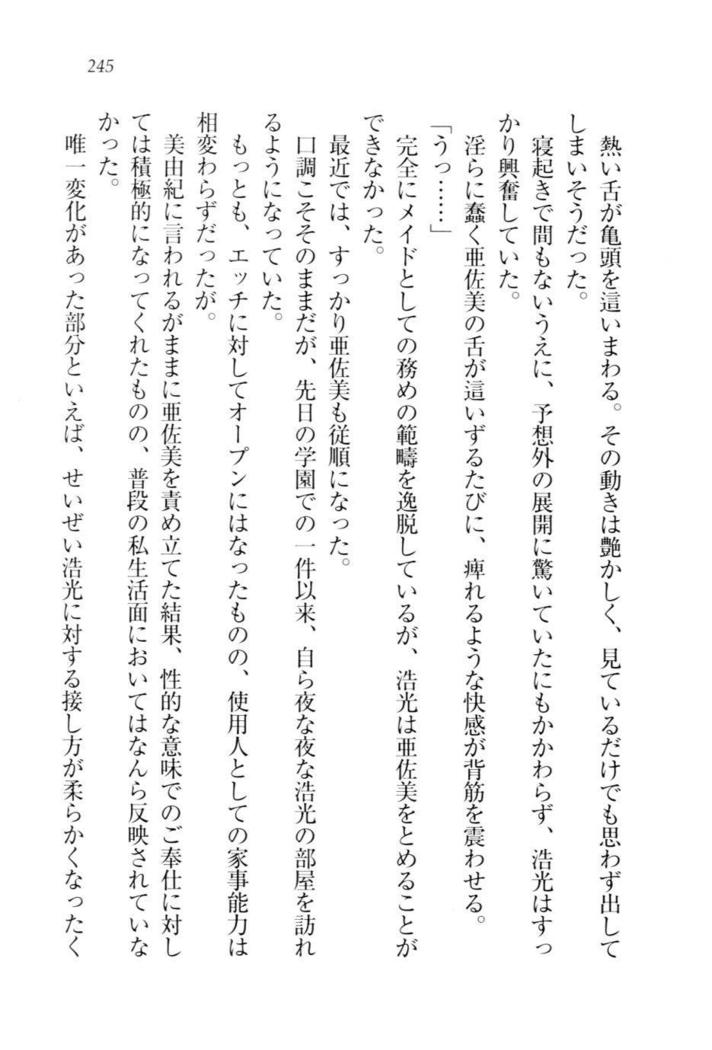 245
熱い舌が亀頭を這いまわる。その動きは艶かしく、見ているだけでも思わず出して
しまいそうだった。
寝起きで間もないうえに、予想外の展開に驚いていたにもかかわらず、浩光はすっ
かり興奮していた。
淫らに蠢く亜佐美の舌が這いずるたびに、痺れるような快感が背筋を震わせる。
「うっ……」
完全にメイドとしての務めの範疇を逸脱しているが、浩光は亜佐美をとめることが
できなかった。
最近では、すっかり亜佐美も従順になった。
口調こそそのままだが、先日の学園での一件以来、自ら夜な夜な浩光の部屋を訪れ
るようになっていた。
もっとも、エッチに対してオープンにはなったものの、使用人としての家事能力は
相変わらずだったが。
美由紀に言われるがままに亜佐美を責め立てた結果、性的な意味でのご奉仕に対し
ては積極的になってくれたものの、普段の私生活面においてはなんら反映されていな
かった。
唯一変化があった部分といえば、せいぜい浩光に対する接し方が柔らかくなったく